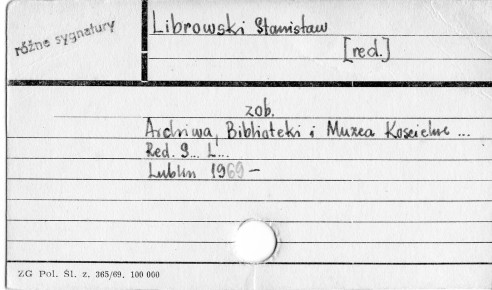 różne sygnatury
Librowski Stanisław
[red.]
zob.
Archiwa, Biblioteki i Muzea Kościelne ...
Red. S... L...
Lublin 1969 -
ZG Pol. Śl. z. 365/69, 100 000